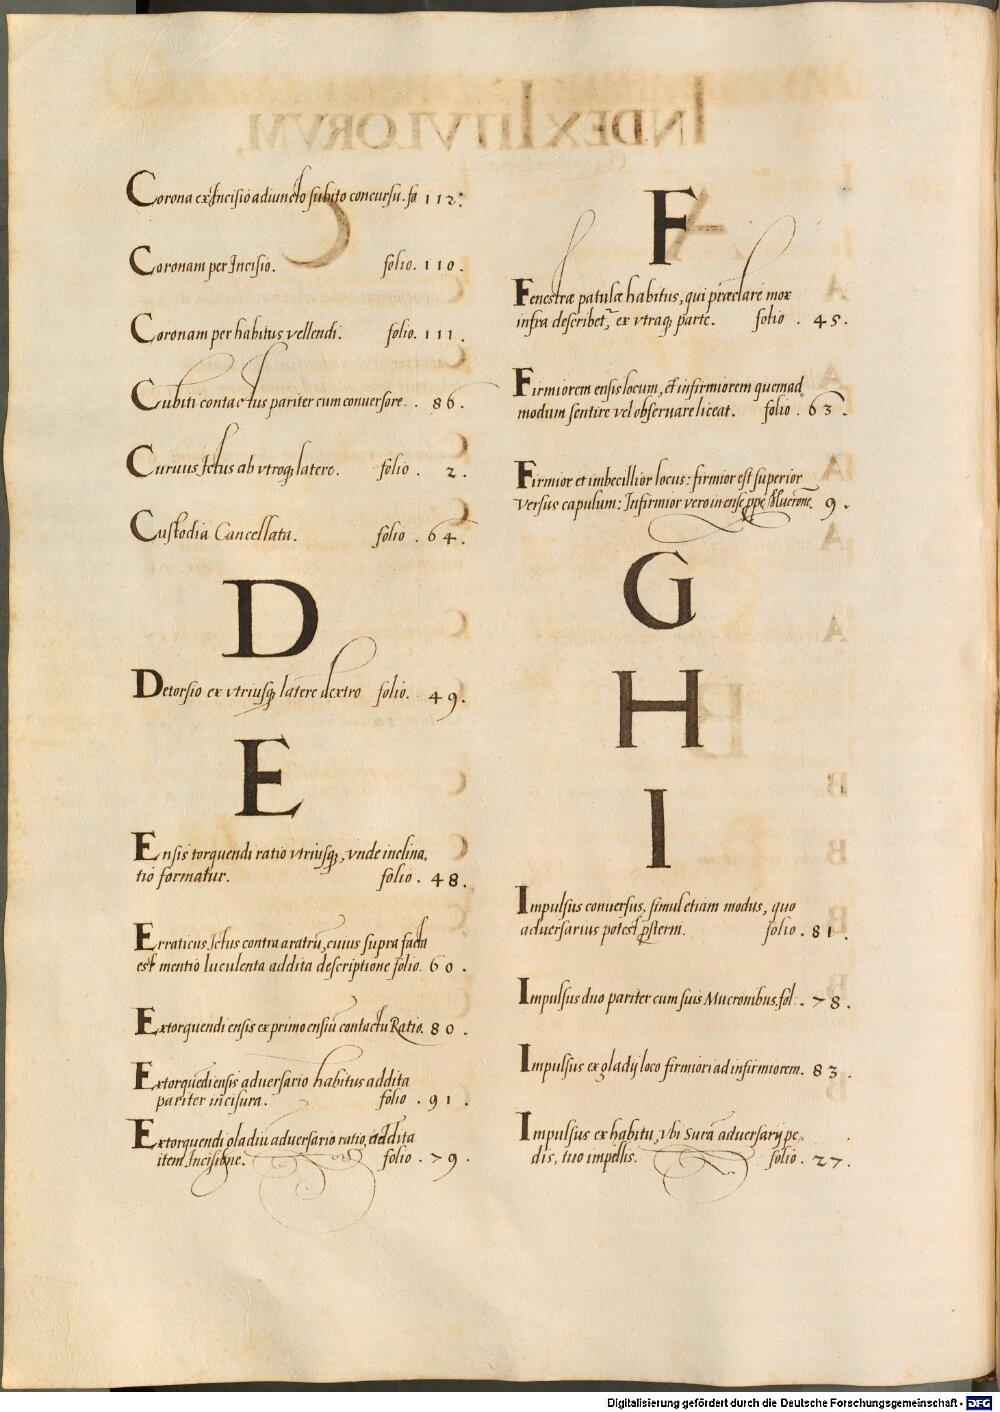 Corona ex Incisio adiuncto subito concursu. fo 112.
Coronam per Incisio. folio. 110.
Coronam per habitus vellendi. folio. 111.
Cubiti contactus pariter cum conuersore. . 86.
Curuus Ictus ab vtroq; latere. folio . 2.
Custodia Cancellata. folio . 64.
D
Detorsio ex vtriusq; latere dextro folio. 49.
E
Ensis torquendi ratio vtriusq;, vnde inclina,
tio formatur. folio . 48.
Erraticus Ictus contra aratrũ, cuius supra facta
est mentio luculenta addita descriptione folio. 60.
Extorquendi ensis ex primo ensiũ contactu Ratio. 80.
Extorquẽdi ensis aduersario habitus addita
pariter incisura. folio . 91.
Extorquendi gladiũ aduersario ratio, addita
item Incisione. folio . 79.
F
Fenestræ patulæ habitus, qui præclare mox
infra describet᷑, ex vtraq; parte. folio . 45.
Firmiorem ensis locum, et infirmiorem quemad,
modum sentire vel obseruare liceat. folio . 63.
Firmior et imbecillior locus: firmior est superior
versus capulum: Infirmior vero in ense ꝓpe Mucronẽ. 9.
G
H
I
Impulsus conuersus, simul etiam modus, quo
aduersarius potest ꝓsterni. folio . 81.
Impulsus duo pariter cum suis Mucronibus. fol. . 78.
Impulsus ex gladij loco firmiori ad infirmiorem. 83.
Impulsus ex habitu, vbi Surã aduersarij pe,
dis, tuo impellis. folio . 27.
INDEX TITVLORVM,
Digitalisierung gefördert durch die Deutsche Forschungsgemeinschaft - DFG